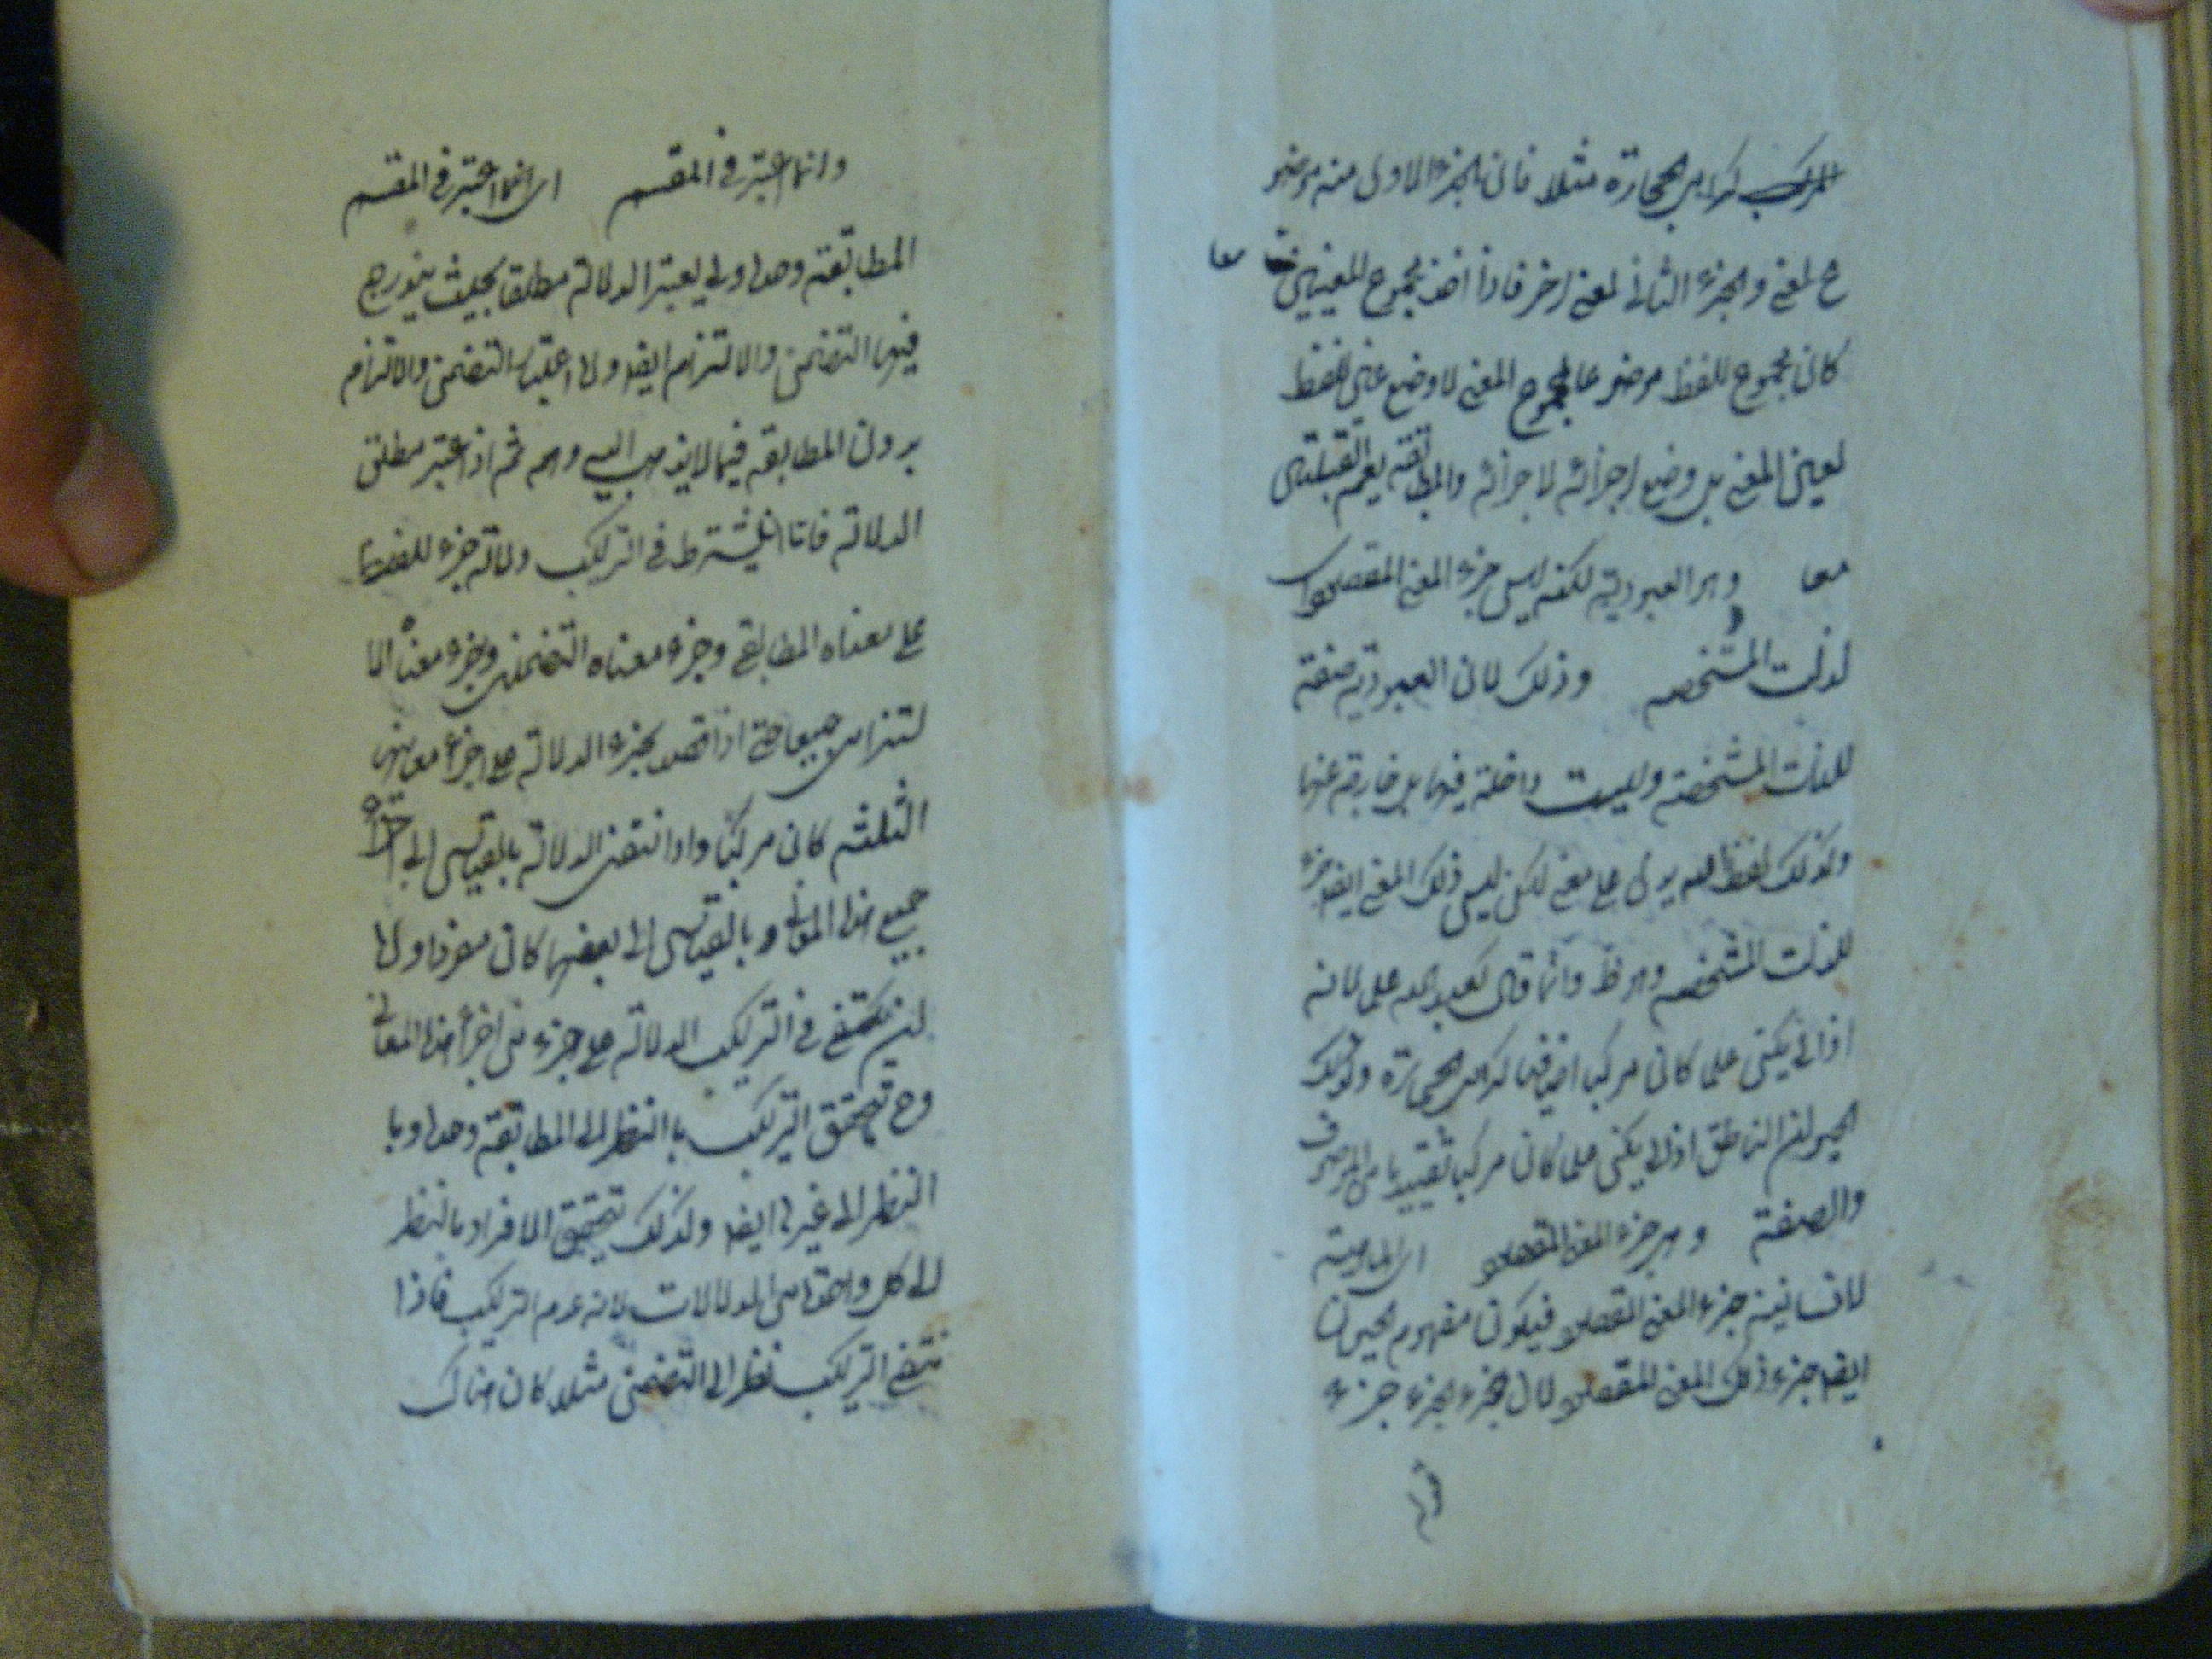 المركب كرامي الحجارة مثلا فان الجزء الاول منه موضو
ع لمعنى والجزء الثاني لمعنى اخر فاذا اخذ مجموع المعنيين معا
كان مجموع اللفظ موضوعا لمجموع المعنى لا وضع عين اللفظ
لعين المعنى بل وضع اجزائه لاجزائه والمطابقة يعم القبيلتين
معا وهو العبودية لكنه ليس جزء المعنى المقصود اى
لذات المشخصه وذلك لان العبودية صفة
للذات المشخصة وليست داخلة فيها بل خارجة عنها
وكذلك لفظ الله يدل على معنى لكن ليس ذلك المعنى ايضا جزء
للذات المشخصه وهو ظ وانما قال كعبد الله علما لانه
اذا لم يكن علما كان مركبا اضافيا كرامي الحجارة وكذلك
الحيوان الناطق اذا لم يكن علما كان مركبا تقييديا من الموصوف
والصفة وهو جزء المعنى المقصود اى الماهية
لانسانية جزء المعنى المقصود فيكون مفهوم الحيوان
ايضا جزء ذلك المعنى المقصود لان جزء الجزء جزء
وانما اعتبر في المقسم اى انما اعتبر في المقسم
المطابقة وحدها ولم يعتبر الدلالة مطلقا بحيث يندرج
فيها التضمن والالتزام ايضا ولا اعتبار التضمن والالتزام
بدون المطابقة فيما لا يذهب اليه وهم ثم اذا اعتبر مطلق
الدلالة فاما ان يشترط في التركيب دلالة جزء اللفظ
على معناه المطابقي وجزء معناه التضمني وجزء معناه الا
لتزامي جميعا حتى اذا قصد بجزء الدلالة على جزء معانيه
الثلثه كان مركبا واذا انتفى الدلالة بالقياس الى اجزاء
جميع هذه المعاني وبالقياس الى بعضها كان مفردا واما
ان يكتفى في التركيب الدلالة على جزء من اجزاء هذه المعاني
وح يتحقق التركيب باالنظر الى المطابقة وحدها وبا
النظر الى غيرها ايضا وكذلك يتحقق الافراد بالنظر
الى كل واحدة من الدلالات لانه عدم التركيب فاذا
نتفى التركيب نظرا الى التضمن مثلا كان هناك